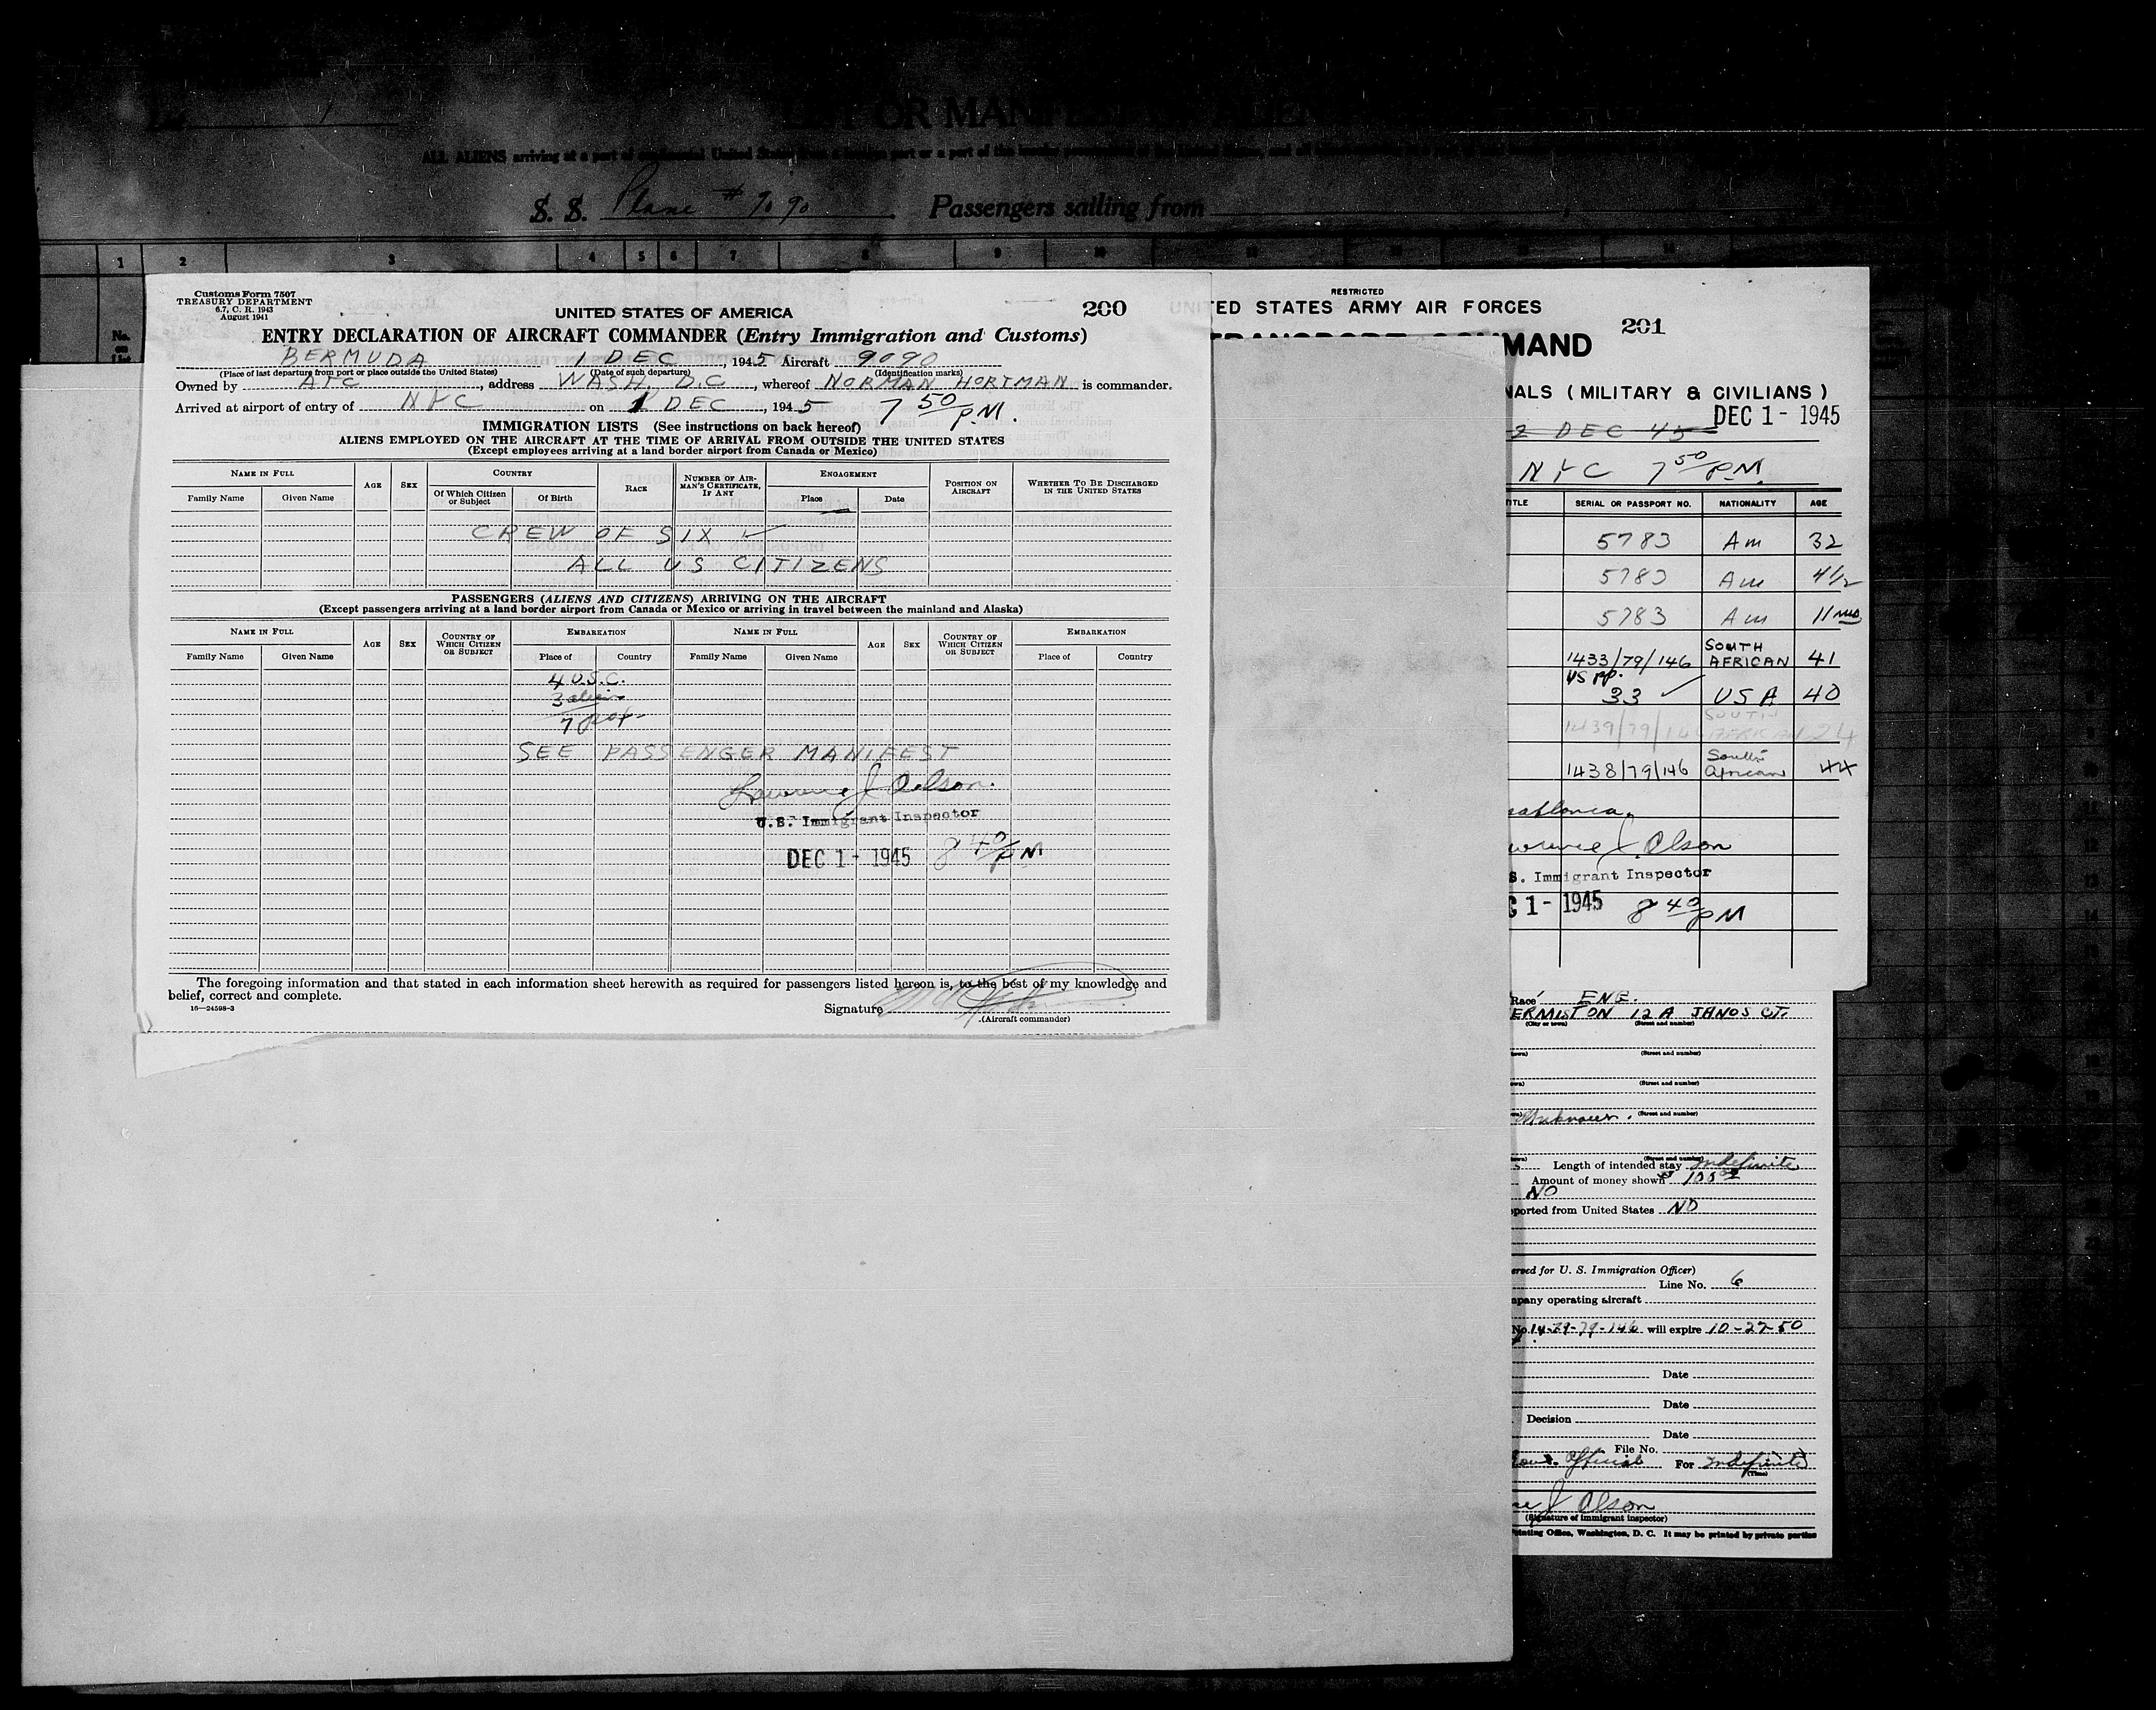 LIST OR MANIFEST OF ALIEN
1
ALL ALIENS arriving at a port of continental United States from a foreign port or a port of the
S. S. Plane # 9090 Passengers sailing from
1 2 3 4 5 6 7 8 9 10 11 12 13 14
No. on List
Customs Form 7507
TREASURY DEPARTMENT
6.7, C. R. 1943
August 1941
UNITED STATES OF AMERICA
200
ENTRY DECLARATION OF AIRCRAFT COMMANDER (Entry Immigration and Customs)
BERMUDA 1 DEC, 1945 Aircraft 9090
(Place of last departure from port or place outside the United States) (Date of such departure) (Identification marks)
Owned by ATC, address WASH, D.C, whereof NORMAN HORTMAN is commander.
Arrived at airport of entry of NYC on 1 DEC, 1945 7 50/PM.
IMMIGRATION LISTS (See instructions on back hereof)
ALIENS EMPLOYED ON THE AIRCRAFT AT THE TIME OF ARRIVAL FROM OUTSIDE THE UNITED STATES
(Except employees arriving at a land border airport from Canada or Mexico)
NAME IN FULL AGE SEX COUNTRY RACE NUMBER OF AIRMAN'S CERTIFICATE, IF ANY ENGAGEMENT POSITION ON AIRCRAFT WHETHER TO BE DISCHARGED IN THE UNITED STATES
Family Name Given Name Of Which Citizen or Subject Of Birth Place Date
CREW OF SIX ✓
ALL US CITIZENS
PASSENGERS (ALIENS AND CITIZENS) ARRIVING ON THE AIRCRAFT
(Except passengers arriving at a land border airport from Canada or Mexico or arriving in travel between the mainland and Alaska)
NAME IN FULL AGE SEX COUNTRY OF WHICH CITIZEN OR SUBJECT EMBARKATION NAME IN FULL AGE SEX COUNTRY OF WHICH CITIZEN OR SUBJECT EMBARKATION
Family Name Given Name Place of Country Family Name Given Name Place of Country
4 U.S.C.
3 aliens
7
SEE PASSENGER MANIFEST
Lawrence J Olson.
U.S. Immigrant Inspector
DEC 1 - 1945 8 40/PM
The foregoing information and that stated in each information sheet herewith as required for passengers listed hereon is, to the best of my knowledge and
belief, correct and complete.
16—24598-3
Signature
(Aircraft commander)
RESTRICTED
UNITED STATES ARMY AIR FORCES
201
TRANSPORT COMMAND
NALS (MILITARY & CIVILIANS)
DEC 1 - 1945
2 DEC 45
NYC 7 50/PM.
TITLE SERIAL OR PASSPORT NO. NATIONALITY AGE
5783 Am 32
5783 Am 4 1/2
5783 Am 11 mos
1433/79/146 SOUTH AFRICAN 41
US PP. 33 ✓ USA 40
1439/79/146 SOUTH AFRICAN 24
1438/79/146 South African 44
sablanca.
wrence J. Olson
S. Immigrant Inspector
C 1 - 1945 8 40/PM
Race ENG.
ERMISTON 12 A JANOS CT.
(City or town) (Street and number)
(Street and number)
(Street and number)
Unknown. (Street and number)
(Street and number)
Length of intended stay Indefinite
Amount of money shown $100
NO
ported from United States NO
erved for U. S. Immigration Officer)
Line No. 6
mpany operating aircraft
No. 14-39-79-146 will expire 10-27-50
Date
Date
Decision
Date
File No.
Govt. Official For Indefinite
(Time)
ce J Olson
(Signature of immigrant inspector)
Printing Office, Washington, D. C. It may be printed by private parties